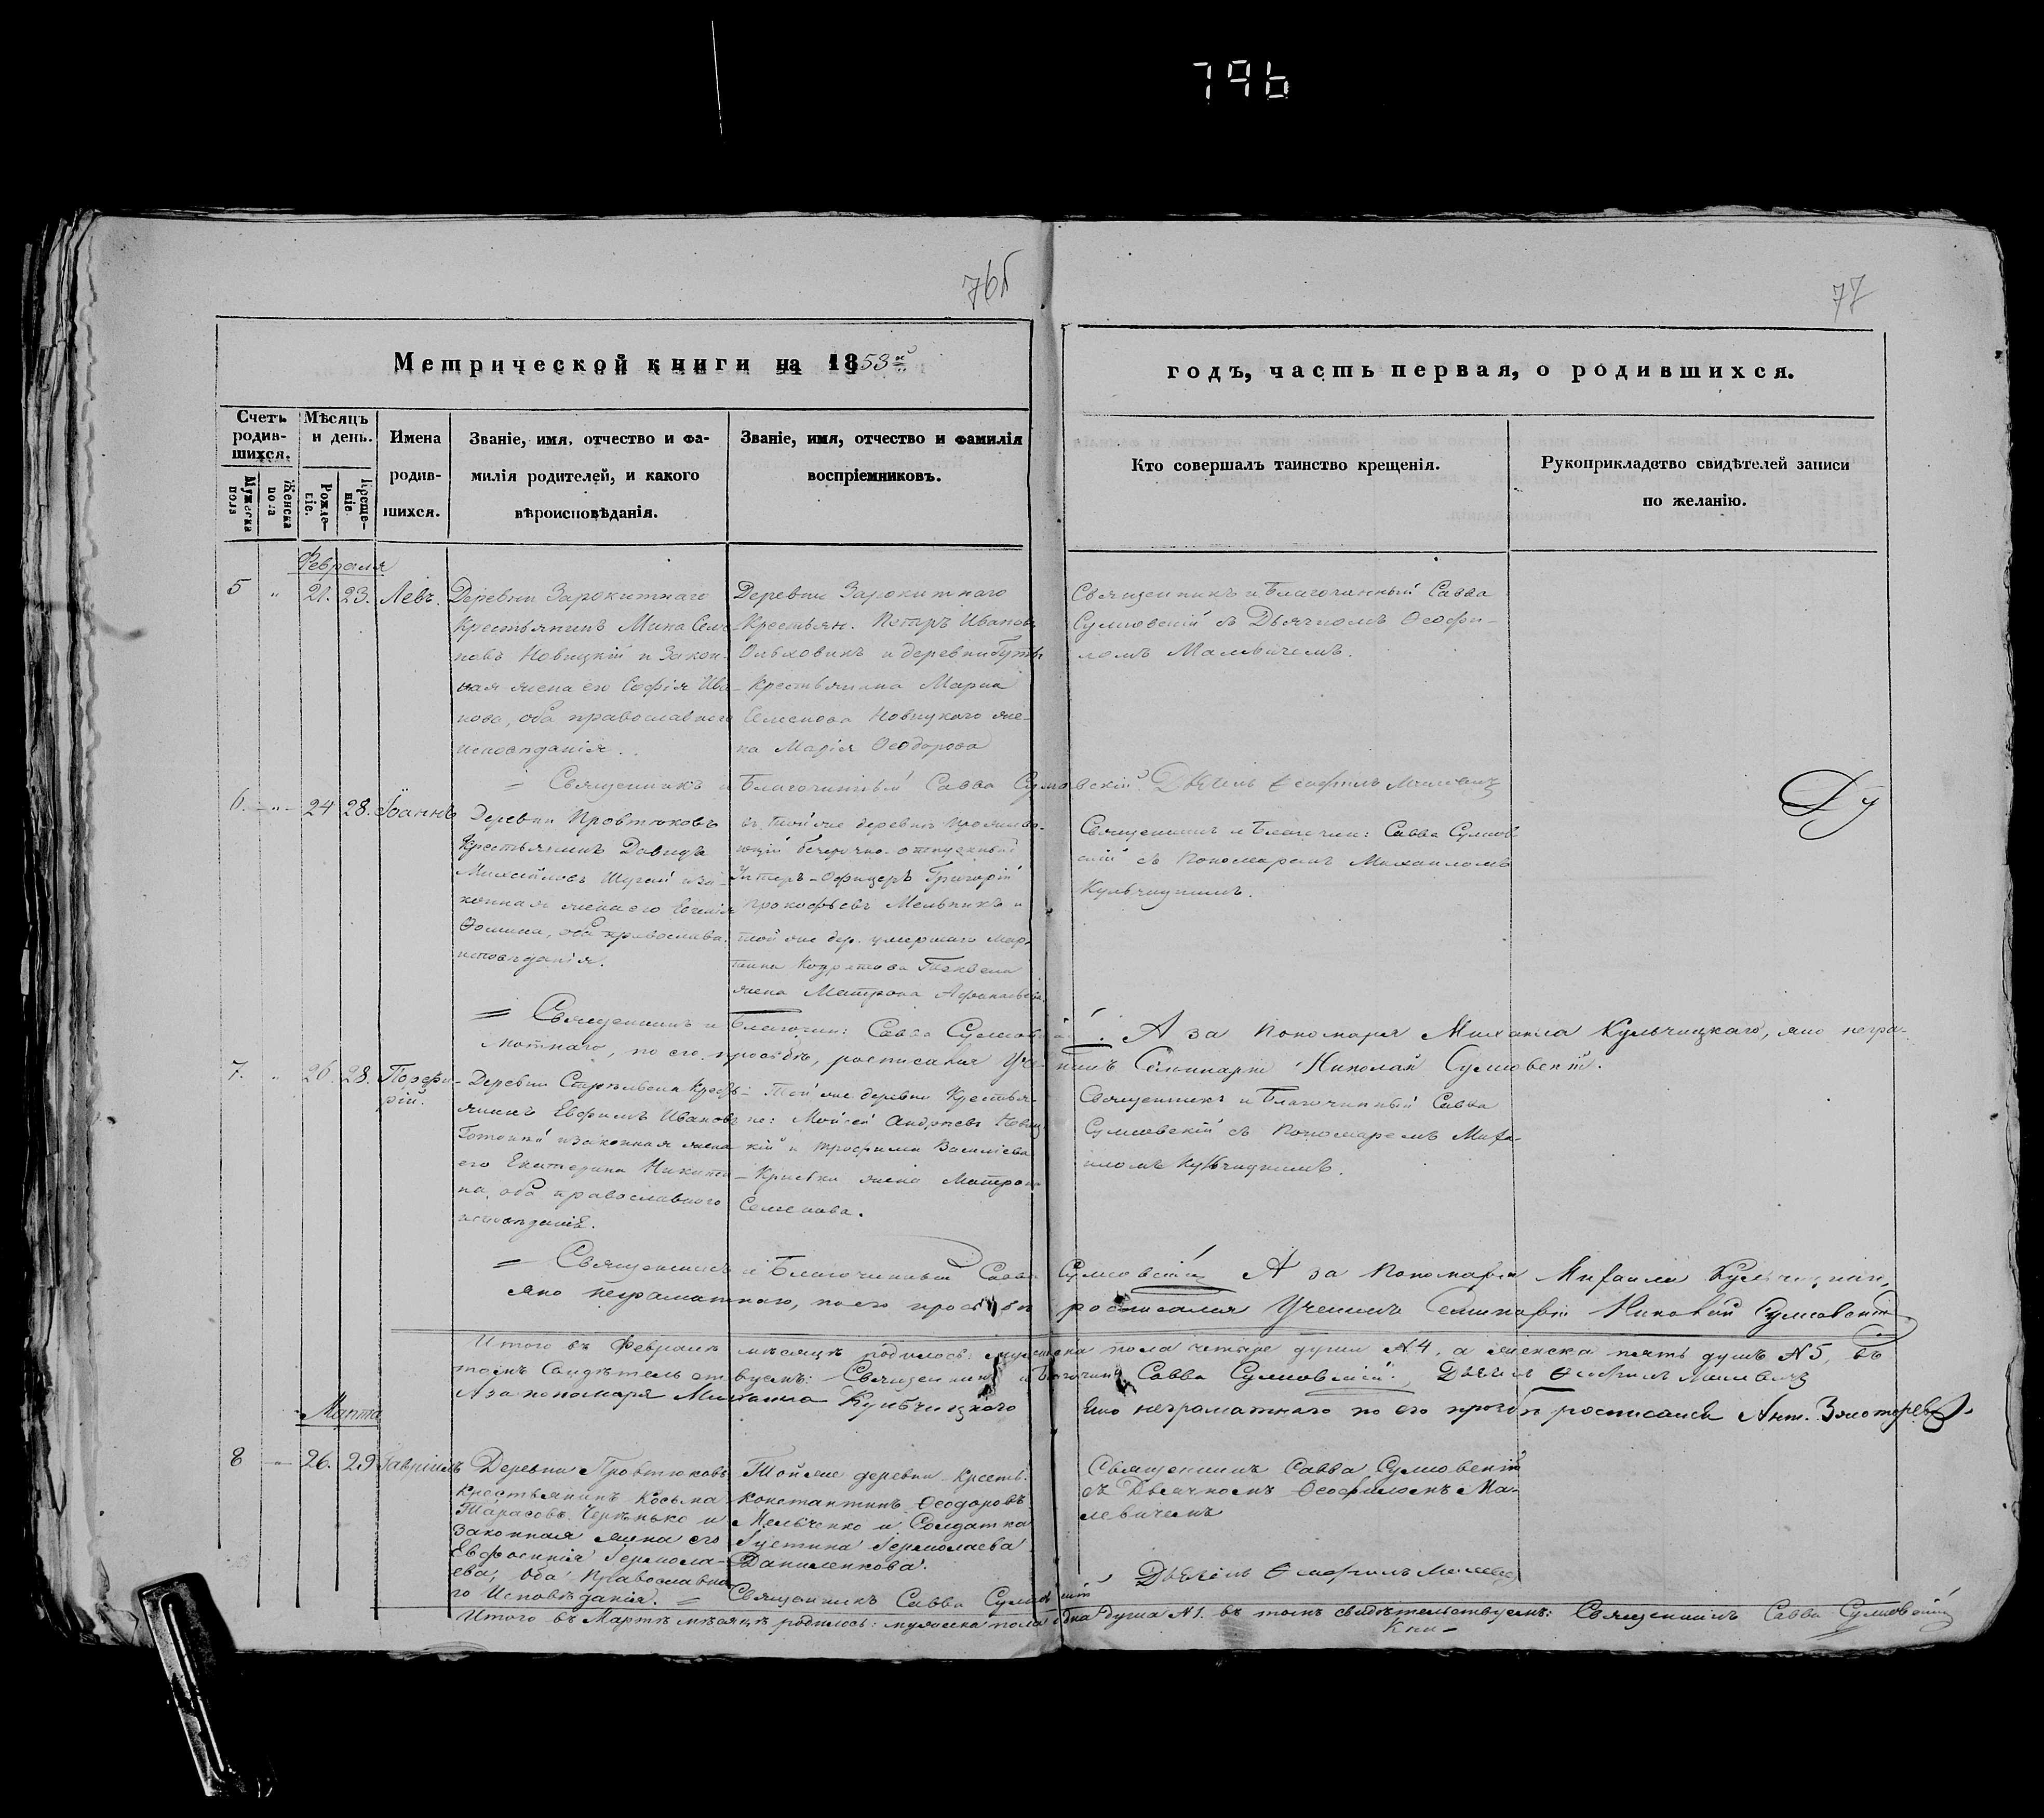 796
76б
77
Метрической книги на 1853й
годъ, часть первая, о родившихся.
Счетъ родив-шихся.
Мужеска пола
Женска пола
Мѣсяцъ и день.
Рожде-ніе.
Креще-ніе.
Имена
родив-
шихся.
Званіе, имя, отчество и фа-
милія родителей, и какого
вѣроисповѣданія.
Званіе, имя, отчество и фамилія
воспріемниковъ.
Кто совершалъ таинство крещенія.
Рукоприкладство свидѣтелей записи
по желанію.
Февраля
5 " 21. 23. Левъ.
Деревни Зарокитнаго
Крестьянинъ Мина Семе-
новъ Новицкій и Закон-
ная жена его Софія Ива-
нова, оба православнаго
исповѣданія.
Деревни Зарокитнаго
Крестьян. Петръ Иванов
Ольховикъ и деревни
Крестьянина
Семенова Новицкаго же-
на Марія Ѳеодорова
Священникъ и Благочинный Савва
Сулковскій съ Дьячкомъ Ѳеофи-
ломъ Малевичемъ.
Священникъ и Благочинный Савва Сулковскій. Дьячекъ Ѳеофилъ Малевичъ
6. " 24 28. Іоаннъ
Деревни Провтюковъ
Крестьянинъ Давидъ
Михайловъ и за-
конная жена его Евгенія
Ѳомина, оба православн.
исповѣданія.
въ той же деревнѣ прожива-
ющій безсрочно-отпускный
Унтеръ-Офицеръ Григорій
Прокофьевъ Мельникъ и
той же дер. умершаго Мар-
тина
жена Матрона Афанасьева.
Священникъ и Благочин: Савва Сулков
скій съ Пономаремъ Михаиломъ
Кульчицкимъ.
Священникъ и Благочин: Савва Сулковскій. А за Пономаря Михаила Кульчицкаго, яко негра-
мотнаго, по его просьбѣ, росписался Уче-никъ Семинаріи Николай Сулковскій.
7. " 26 28. Порфи-
рій.
Деревни Крестъ-
янинъ Евфимъ Ивановъ
и законная жена
его Екатерина Никити-
на, оба православнаго
исповѣданія.
Той же деревни Крестья-
не: Мойсей Андреевъ Новиц
кій и Трофима Васильева
жена Матрона
Семенова.
Священникъ и Благочинный Савва
Сулковскій съ Пономаремъ Миха-
иломъ Кульчицкимъ.
Священникъ и Благочинный Савва Сулковскій А за Пономаря Михаила Кульчицкаго,
яко неграматнаго, по его просьбѣ росписался Ученикъ Семинаріи Николай Сулковскій
Итого въ Февралѣ мѣсяцѣ родилось: мужеска пола четыре души №4, а женска пять душъ №5, Въ
томъ Свидѣтельствуемъ: Священникъ и Благочин. Савва Сулковскій. Дьячекъ Ѳеофилъ Малевичъ
А за пономаря Михаила Кульчицкаго яко неграматнаго по его прозбѣ росписался Ант.
Марта
8 — 26. 29 Гавріилъ
Деревни Провтюковъ
Крестьянинъ Косьма
Тарасовъ и
законная жена его
Евфросинія Іермола-
ева, оба Православна-
го Исповѣданія.
Той же деревни Крестъ.
Константинъ Ѳеодоровъ
Мельченко и Солдатка
Іустина Іермолаева
Даниленкова.
Священникъ Савва Сулковскій
съ Дьячкомъ Ѳеофиломъ Ма-
левичемъ
Священникъ Савва Сулковскій Дьячекъ Ѳеофилъ Малевичъ
Итого въ Мартѣ мѣсяцѣ родилось: мужеска пола одна душа №1. въ томъ свидѣтельствуемъ: Священникъ Савва Сулковскій